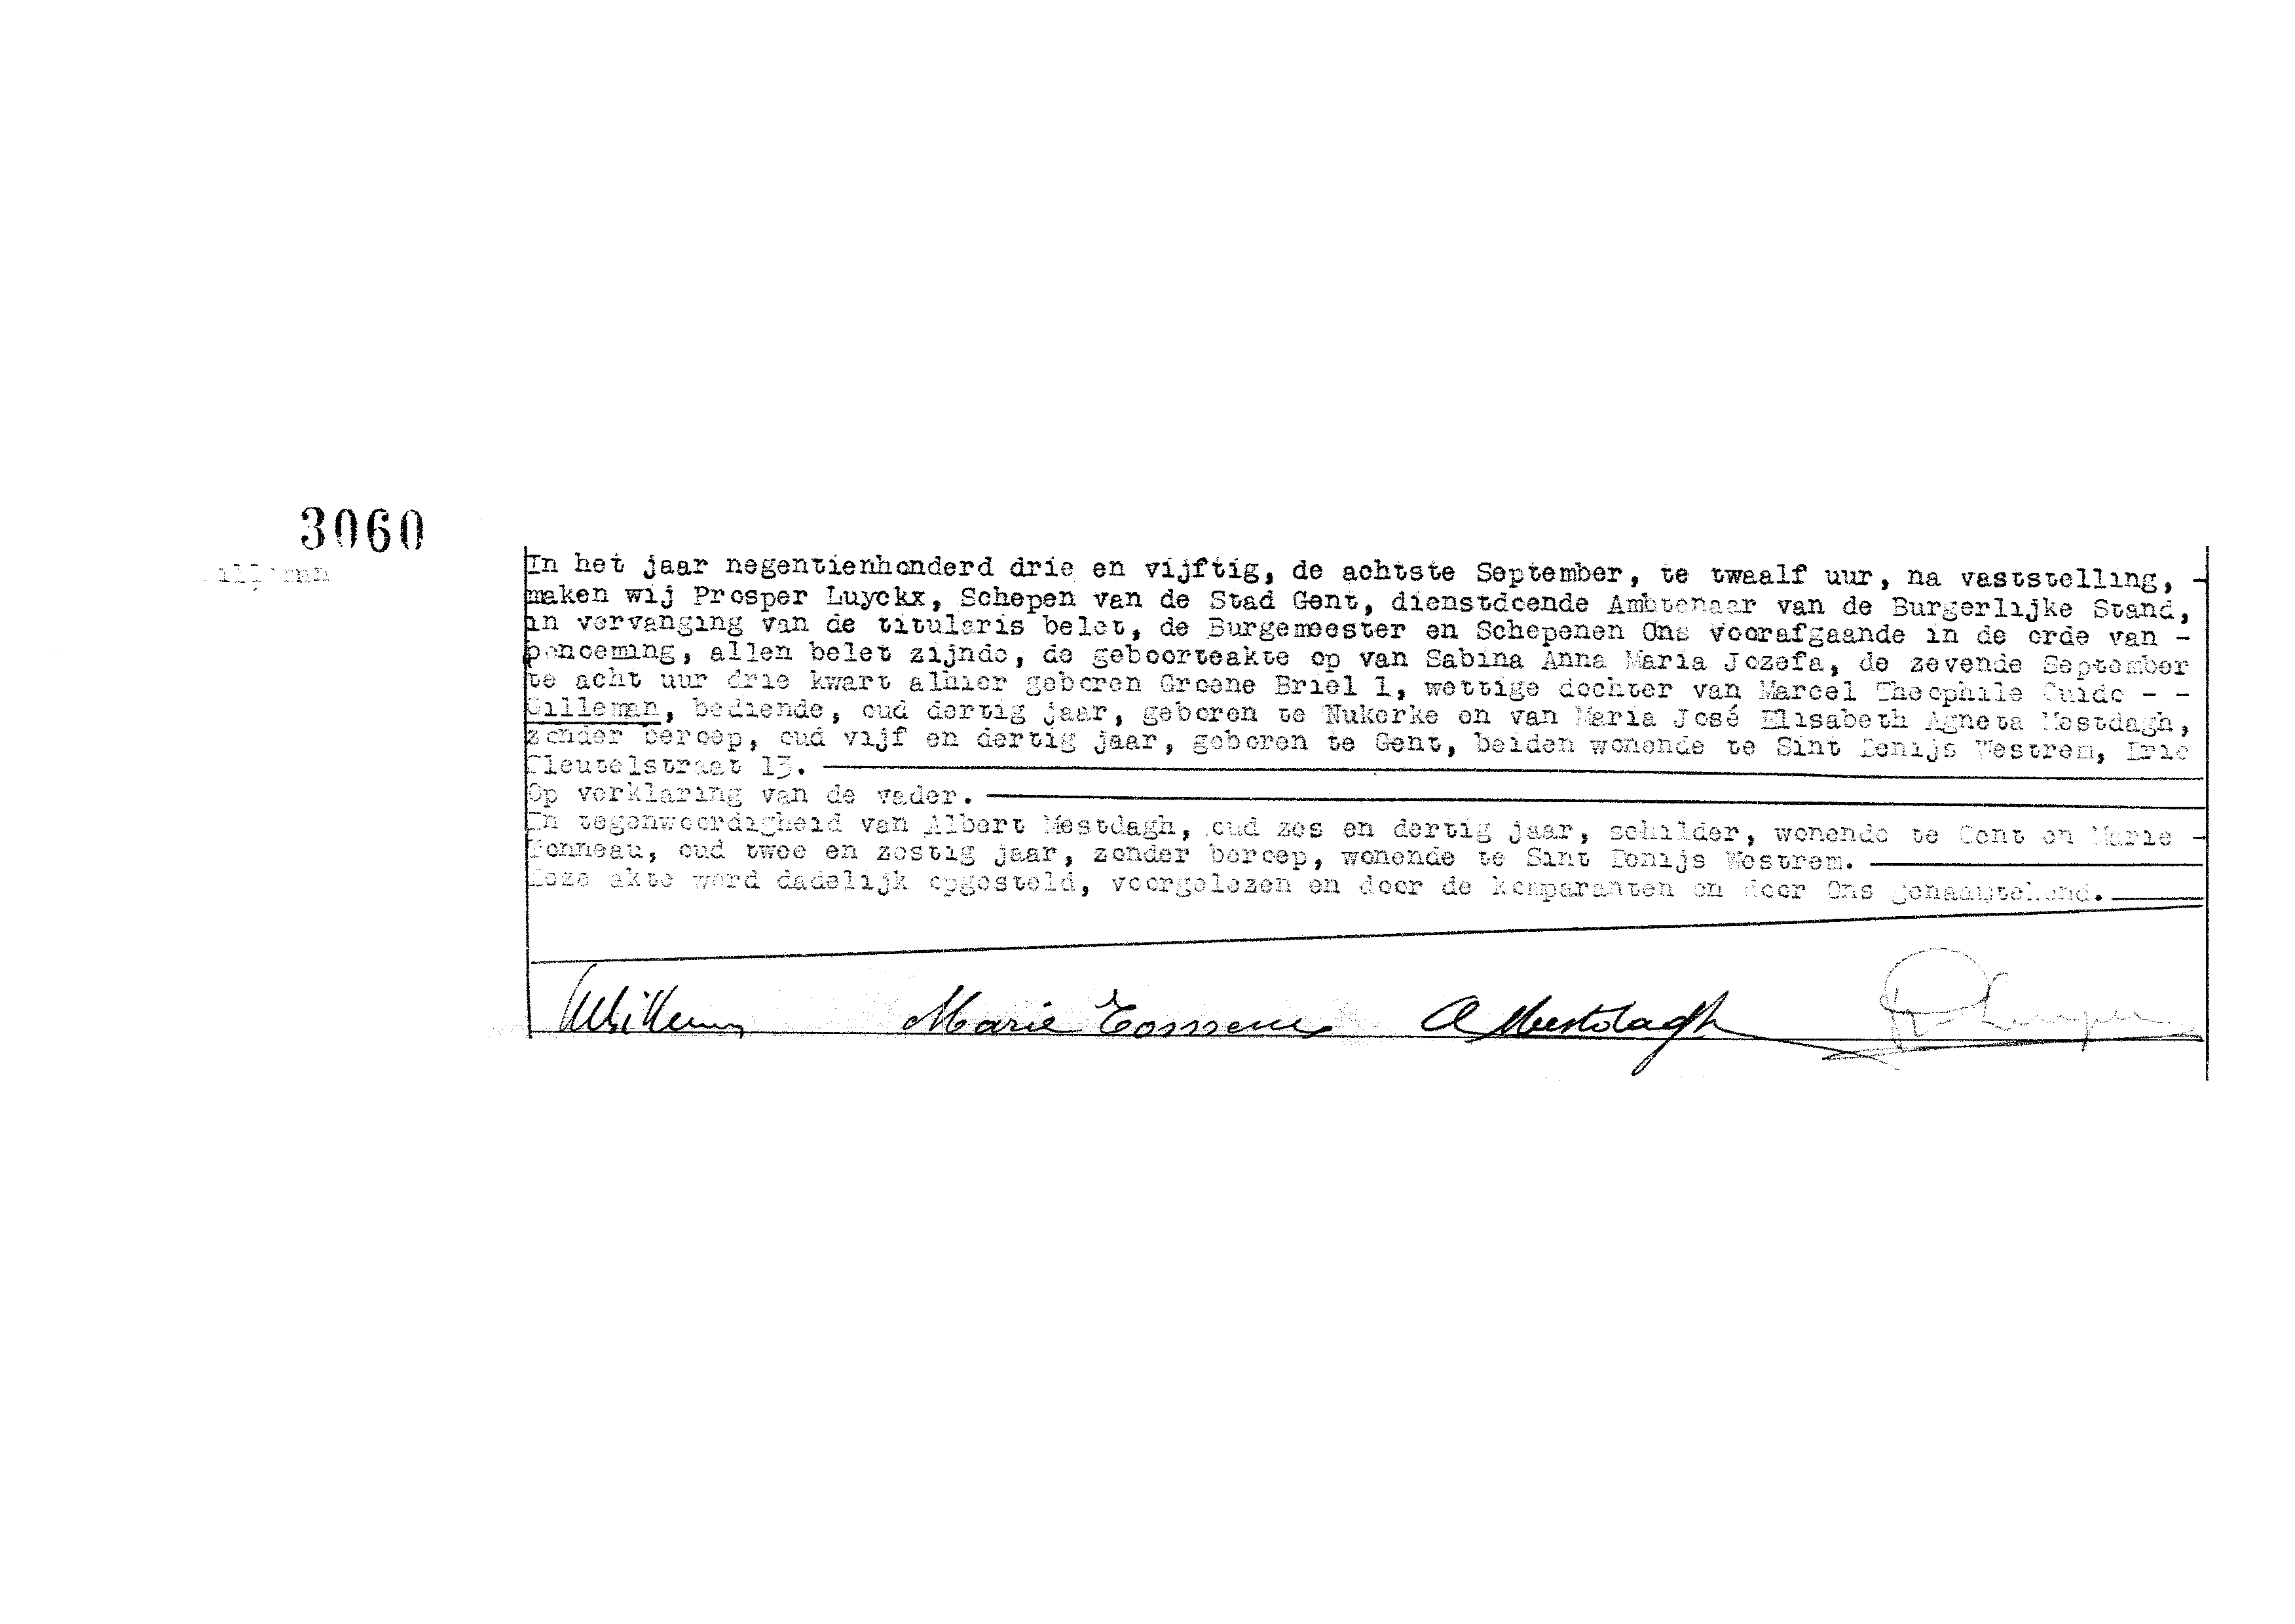 3060
In het jaar negentienhonderd drie en vijftig, de achtste September, te twaalf uur, na vaststelling, -
maken wij Prosper Luyckx, Schepen van de Stad Gent, dienstdoende Ambtenaar van de Burgerlijke Stand,
in vervanging van de titularis belet, de Burgemeester en Schepenen Ons voorafgaande in de orde van -
benoeming, allen belet zijnde, de geboorteakte op van Sabina Anna Maria Jozefa, de zevende September
te acht uur drie kwart alhier geboren Groene Briel 1, wettige dochter van Marcel Theophile Guido - -
Gilleman, bediende, oud dertig jaar, geboren te Nukerke en van Maria José Elisabeth Agneta Mestdagh,
zonder beroep, oud vijf en dertig jaar, geboren te Gent, beiden wonende te Sint Denijs Westrem, Drie
Sleutelstraat 13.
Op verklaring van de vader.
In tegenwoordigheid van Albert Mestdagh, oud zes en dertig jaar, schilder, wonende te Gent en Marie -
oud twee en zestig jaar, zonder beroep, wonende te Sint Denijs Westrem.
Deze akte werd dadelijk opgesteld, voorgelezen en door de komparanten en door Ons genaamtekend.
Marie A Mestdagh